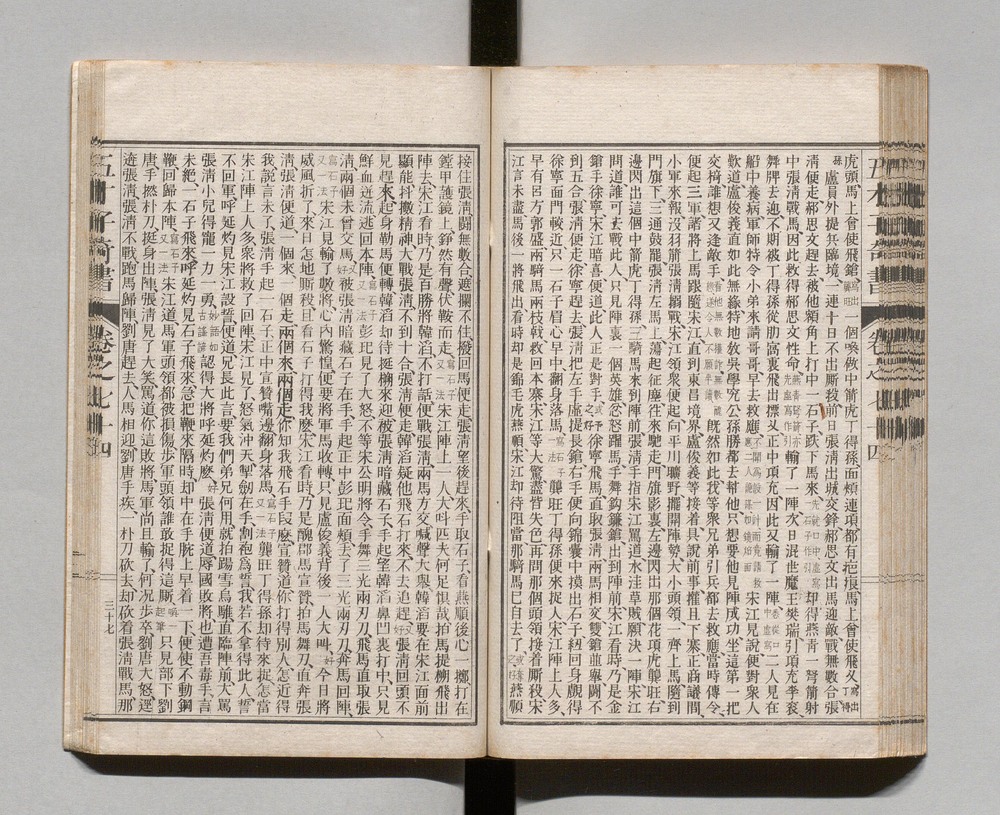 虎頭馬上會使飛鎗一個喚做中箭虎丁得孫面頰連項都有疤痕馬上會使飛叉
盧員外提兵臨境一連十日不出廝殺前日張清出城交鋒郝思文出馬迎敵戰無數合張
清便走郝思文趕去被他額角上打中一石子跌下馬來却得燕青一弩箭射
中張清戰馬因此救得郝思文性命輸了一陣次日混世魔王樊瑞引項充李袞
舞牌去迎不期被丁得孫從肋窩裏飛出標叉正中項充因此又輸了一陣二人見在
船中養病軍師特令小弟來請哥哥早去救應宋江見說便對衆人
歎道盧俊義直如此無緣特地敎吳學究公孫勝都去幫他只想要他見陣成功坐這第一把
交椅誰想又逢敵手旣然如此我等衆兄弟引兵都去救應當時傳令
便起三軍諸將上馬跟隨宋江直到東昌境界盧俊義等接着具說前事權且下寨正商議間
小軍來報沒羽箭張清搦戰宋江領衆便起向平川曠野擺開陣勢大小頭領一齊上馬隨到
門旗下三通鼓罷張清在馬上蕩起征塵往來馳走門旗影裏左邊閃出那個花項虎龔旺右
邊閃出這個中箭虎丁得孫三騎馬來到陣前張清手指宋江罵道水洼草賊願決一陣宋江
問道誰可去戰此人只見陣裏一個英雄忿怒躍馬手舞鈎鐮鎗出到陣前宋江看時乃是金
鎗手徐寧宋江暗喜便道此人正是對手徐寧飛馬直取張清兩馬相交雙鎗並舉鬬不
到五合張清便走徐寧趕去張清把左手虛提長鎗右手便向錦囊中摸出石子扭回身覷得
徐寧面門較近只一石子眉心早中翻身落馬龔旺丁得孫便來捉人宋江陣上人多
早有呂方郭盛兩騎馬兩枝戟救回本寨宋江等大驚盡皆失色再問那個頭領接着廝殺宋
江言未盡馬後一將飛出看時却是錦毛虎燕順宋江却待阻當那騎馬已自去了燕順
接住張清鬬無數合遮攔不住撥回馬便走張清望後趕來手取石子看燕順後心一擲打在
鏜甲護鏡上錚然有聲伏鞍而走宋江陣上一人大叫匹夫何足懼哉拍馬提槊飛出
陣去宋江看時乃是百勝將韓滔不打話便戰張清兩馬方交喊聲大舉韓滔要在宋江面前
顯能抖擻精神大戰張清不到十合張清便走韓滔疑他飛石打來不去追趕張清回頭不
見趕來起身勒馬便轉韓滔却待挺槊來迎被張清暗藏石子手起望韓滔鼻凹裏打中只見
鮮血迸流逃回本陣彭玘見了大怒不等宋公明將令手舞三光兩刃刀飛馬直取張
清兩個未曾交馬被張清暗藏石子在手手起正中彭玘面頰去了三光兩刃刀奔馬回陣
宋江見輸了數將心內驚惶便要將軍馬收轉只見盧俊義背後一人大叫今日將
威風折了來日怎地廝殺且看石子打得我麽宋江看時乃是醜郡馬宣贊拍馬舞刀直奔張
清張清便道一個來一個走兩個來兩個走你知我飛石手段麽宣贊道你打得別人怎近得
我說言未了張清手起一石子正中宣贊嘴邊翻身落馬龔旺丁得孫却待來捉怎當
宋江陣上人多衆將救了回陣宋江見了怒氣沖天掣劍在手割袍爲誓我若不拿得此人誓
不回軍呼延灼見宋江設誓便道兄長此言要我們弟兄何用就拍踢雪烏騅直臨陣前大罵
張清小兒得寵一力一勇認得大將呼延灼麽張清便道辱國敗將也遭吾毒手言
未絶一石子飛來呼延灼見石子飛來急把鞭來隔時却中在手腕上早着一下便使不動鋼
鞭回歸本陣宋江道馬軍頭領都被損傷步軍頭領誰敢捉得這廝只見部下劉
唐手撚朴刀挺身出陣張清見了大笑罵道你這敗將馬軍尚且輸了何況步卒劉唐大怒逕
迯張清張清不戰跑馬歸陣劉唐趕去人馬相迎劉唐手疾一朴刀砍去却砍着張清戰馬那
五才子奇書
卷之七十四
三十七